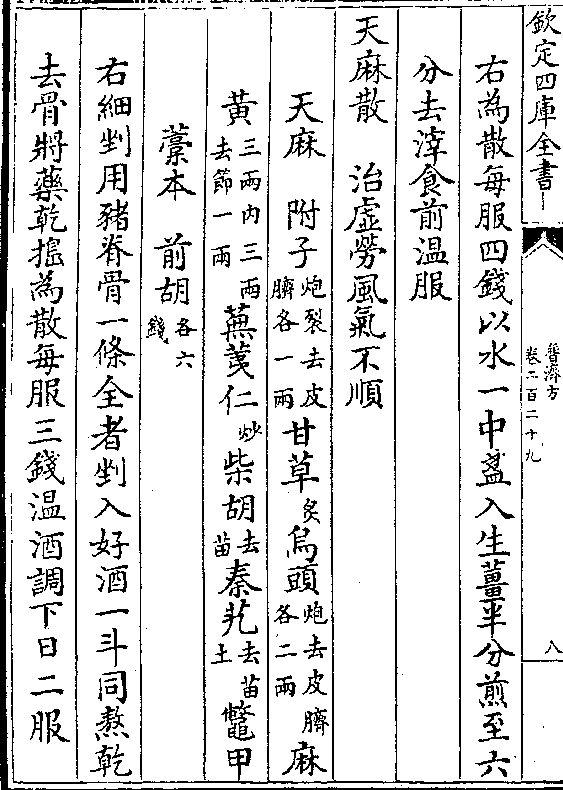 欽定四庫全書
普濟方
卷二百二十九
八
右為散每服四錢以水一中盞入生薑半分煎至六
分去滓食前温服
天麻散　治虛勞風氣不順
天麻　附子炮裂去皮臍各一兩甘草炙烏頭炮去皮臍各二兩麻
黃三兩内三兩去節一兩蕪荑仁炒柴胡去苗秦艽去苗土鼈甲
藁本　前胡各六錢
右細剉用豬脊骨一條全者剉入好酒一斗同熬乾
去骨將藥乾搗為散每服三錢温酒調下日二服